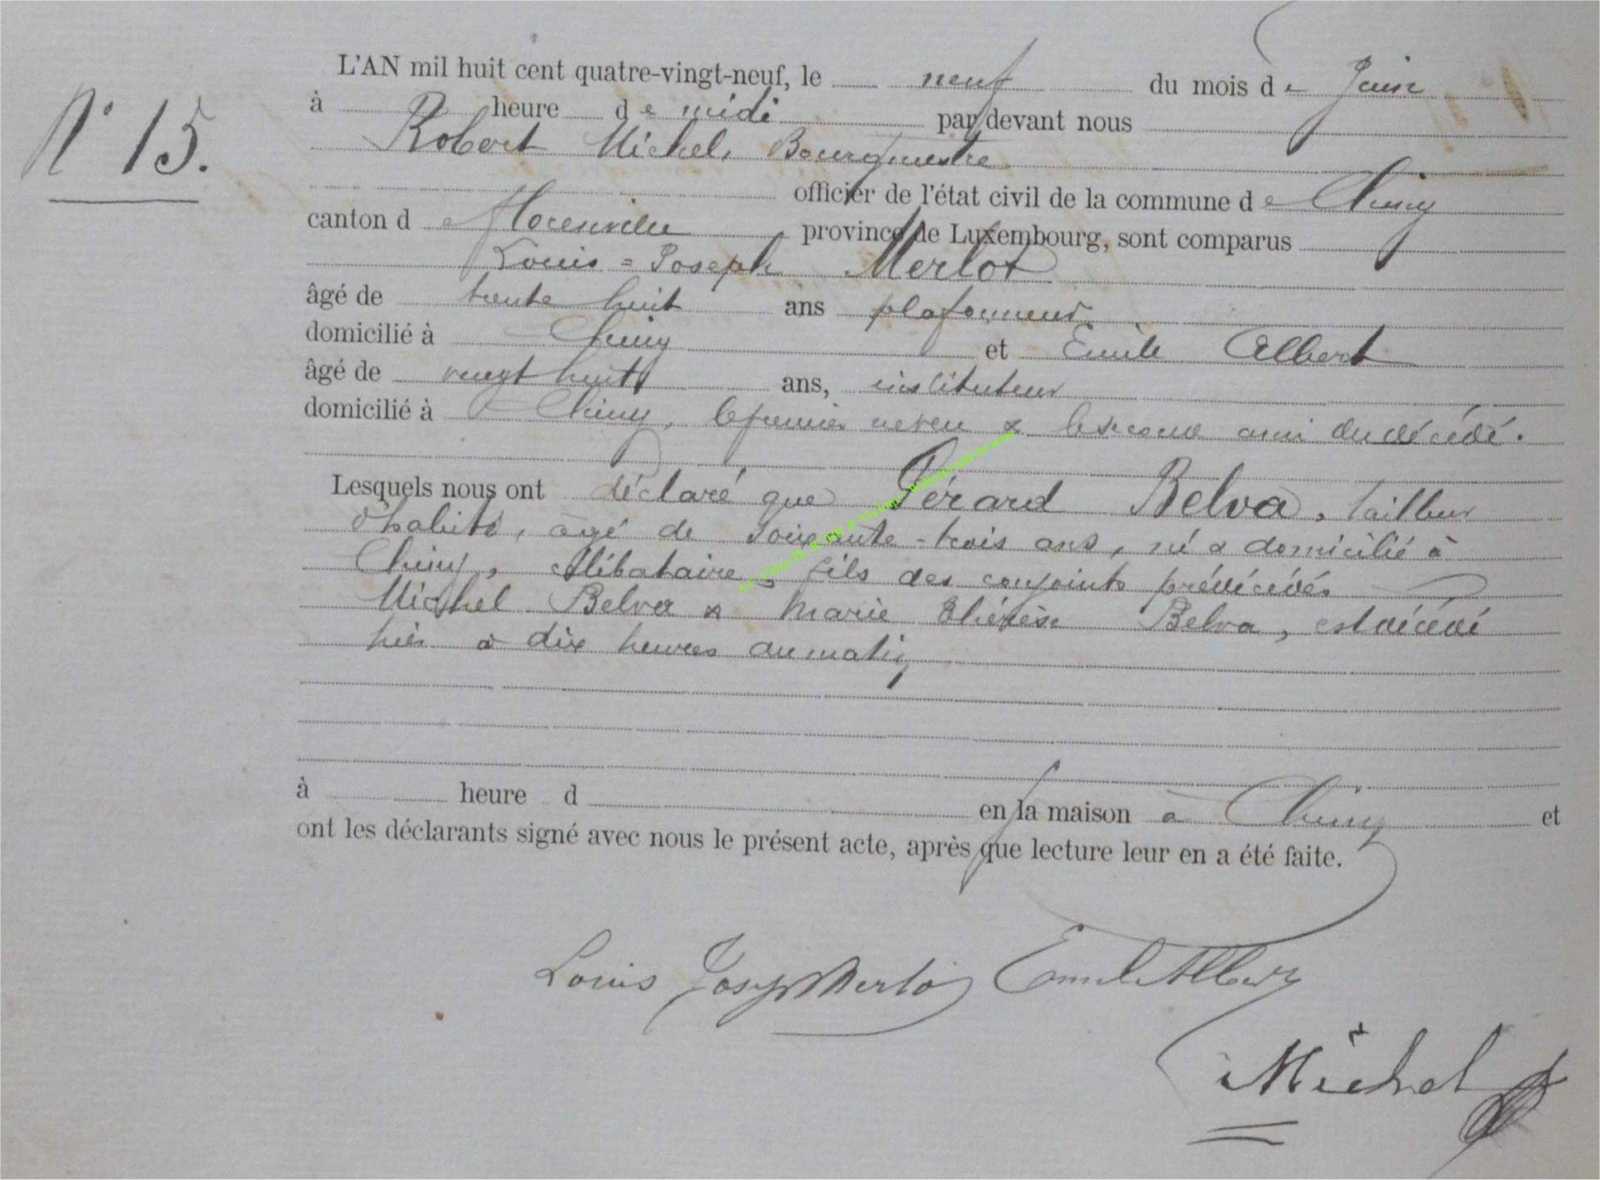 N° 15.
L'AN mil huit cent quatre-vingt-neuf, le neuf du mois de Juin
à heure de midi par devant nous
Robert Michel, Bourgmestre
officier de l'état civil de la commune de Chiny
canton de Florenville province de Luxembourg, sont comparus
Louis=Joseph Merlot
âgé de trente huit ans plafonneur
domicilié à Chiny et Emile Albert
âgé de vingt huit ans, instituteur
domicilié à Chiny, le premier neveu & le second ami du décédé.
Lesquels nous ont déclaré que Gérard Belva, tailleur
d'habits, âgé de soixante-trois ans, né & domicilié à
Chiny, célibataire, fils des conjoints prédécédés
Michel Belva & Marie Thérèse Belva, est décédé
hier à dix heures du matin
à heure d en la maison à Chiny et
ont les déclarants signé avec nous le présent acte, après que lecture leur en a été faite.
Louis Josep Merlot Emile Albert
RMichel